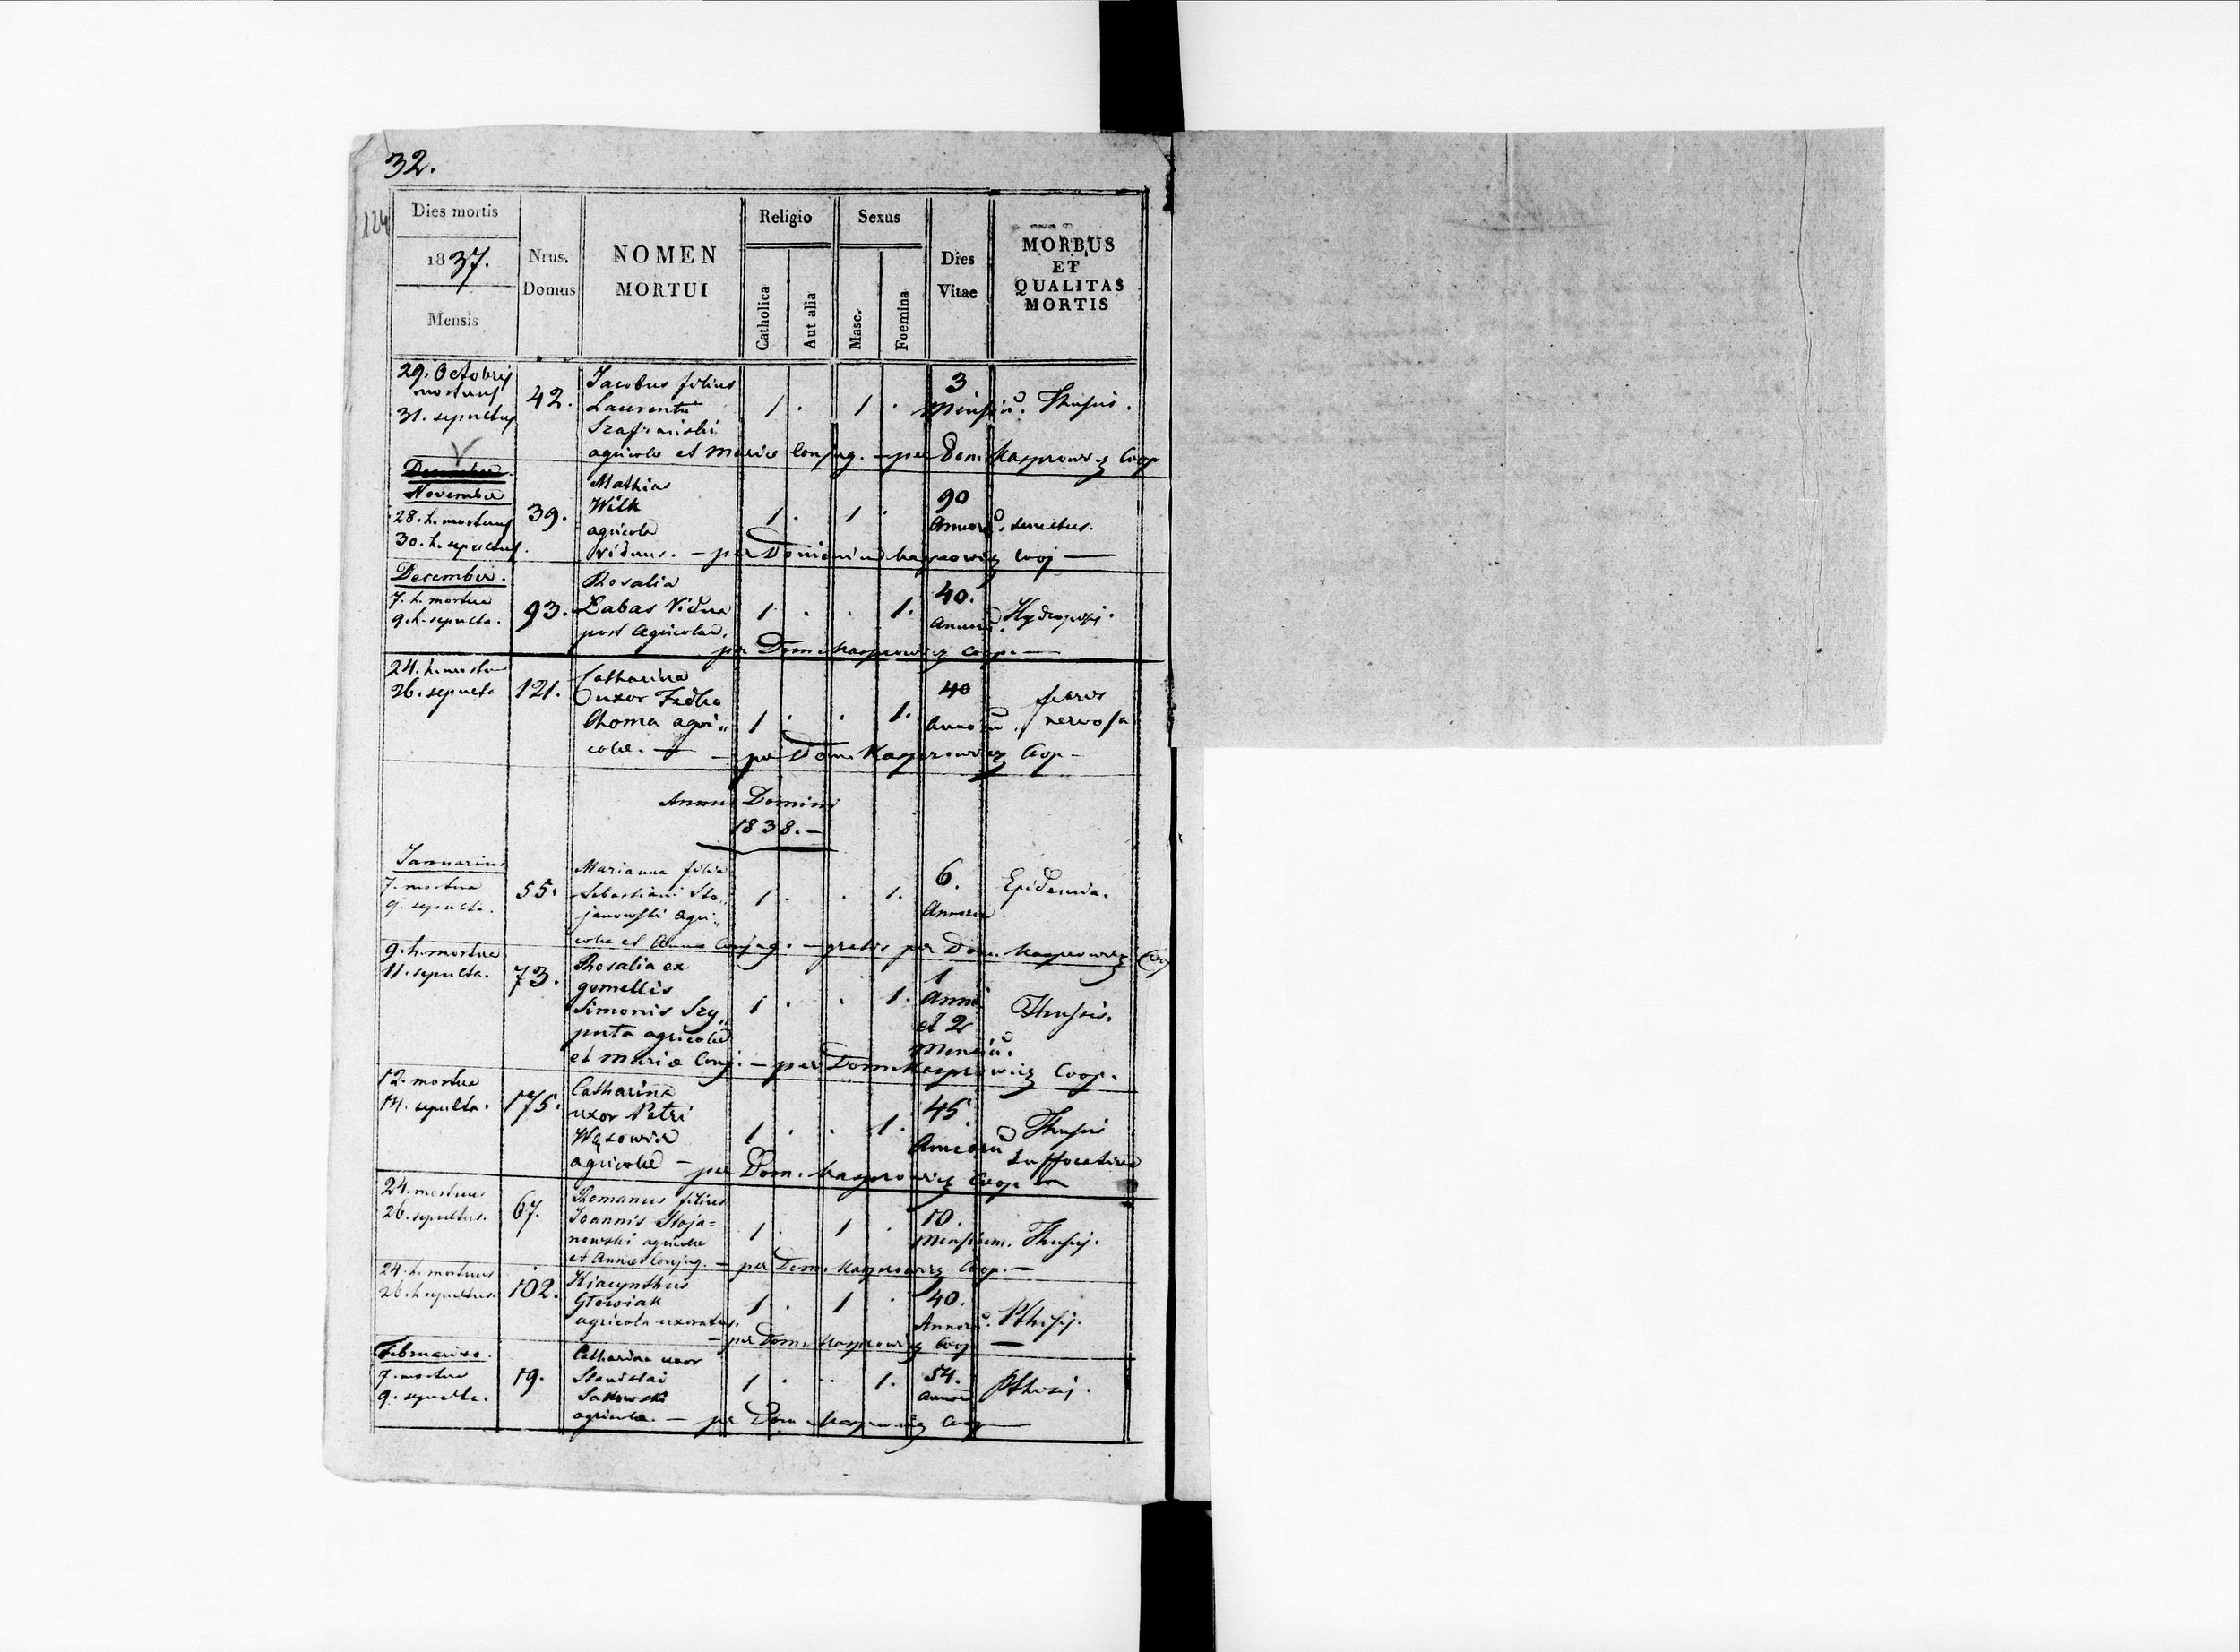 32.
124
Dies mortis
1837.
Mensis
Nrus.
Domus
NOMEN
MORTUI
Religio
Catholica
Aut alia
Sexus
Masc.
Foemina
Dies
Vitae
MORBUS
ET
QUALITAS
MORTIS
29. Octobris
mortuus
31. sepultus
42.
Jacobus filius
Laurentii
Szafranski
agricolae et Mariae Conjug. — per Dom. Kasprowicz Coop
1 . 1 .
3
Mensiu. Thusis.
December
November
28. h. mortuus
30. h. sepultus.
39.
Mathias
Wilk
agricola
viduus. — per Dominum Kasprowicz Cooj —
1 . 1 .
90
Annoru. senectus.
December.
7. h. mortua
9. h. sepulta.
93.
Rosalia
Labas Vidua
post agricolam.
per Dom. Kasprowicz Coop. —
1. . . 1.
40.
Annoru. Hydropisi.
24. h. mortua
26. sepulta
121.
Catharina
uxor Fedko
Choma agri„
colae. — — per Dom. Kasprowicz Coop —
1 . . 1.
40
Annoru.
febris
nervosa
Annus Domini
1838. —
Januarius
7. mortua
9. sepulta.
55.
Marianna filia
Sebastiani Sto„
janowski agri„
colae et Anna Conjug. — gratis per Dom. Kasprowicz Coop
1 . . 1.
6.
Annoru.
Epidemia.
9. h. mortua
11. sepulta.
73.
Rosalia ex
gemellis
Simonis Szy„
puta agricolae
et Mariae Conj. — per Dom. Kasprowicz Coop.
1 . . 1.
1
Anni
et 2
Mensiu.
Thusis.
12. mortua
14. sepulta.
175.
Catharina
uxor Petri
Wąsowicz
agricolae — per Dom. Kasprowicz Coop
1 . . 1.
45
Annoru
Thusis
suffocativa
24. mortuus
26. sepultus.
67.
Romanus filius
Joannis Stoja=
nowski agricolae
et Annae Conjug. — per Dom. Kasprowicz Coop. —
1. . 1 .
10.
Mensium. Thusis.
24. h. mortuus
26. h. sepultus.
102.
Hiacynthus
Głowiak
agricola uxoratus.
— per Dom. Kasprowicz Cooj —
1 . 1 .
40.
Annoru. Pthisis.
Februarius.
7. mortua
9. sepulta.
19.
Catharina uxor
Stanislai
Sakowski
agricolae. — per Dom Kasprowicz Coop —
1 . . 1.
54.
Annoru
Pthisis.